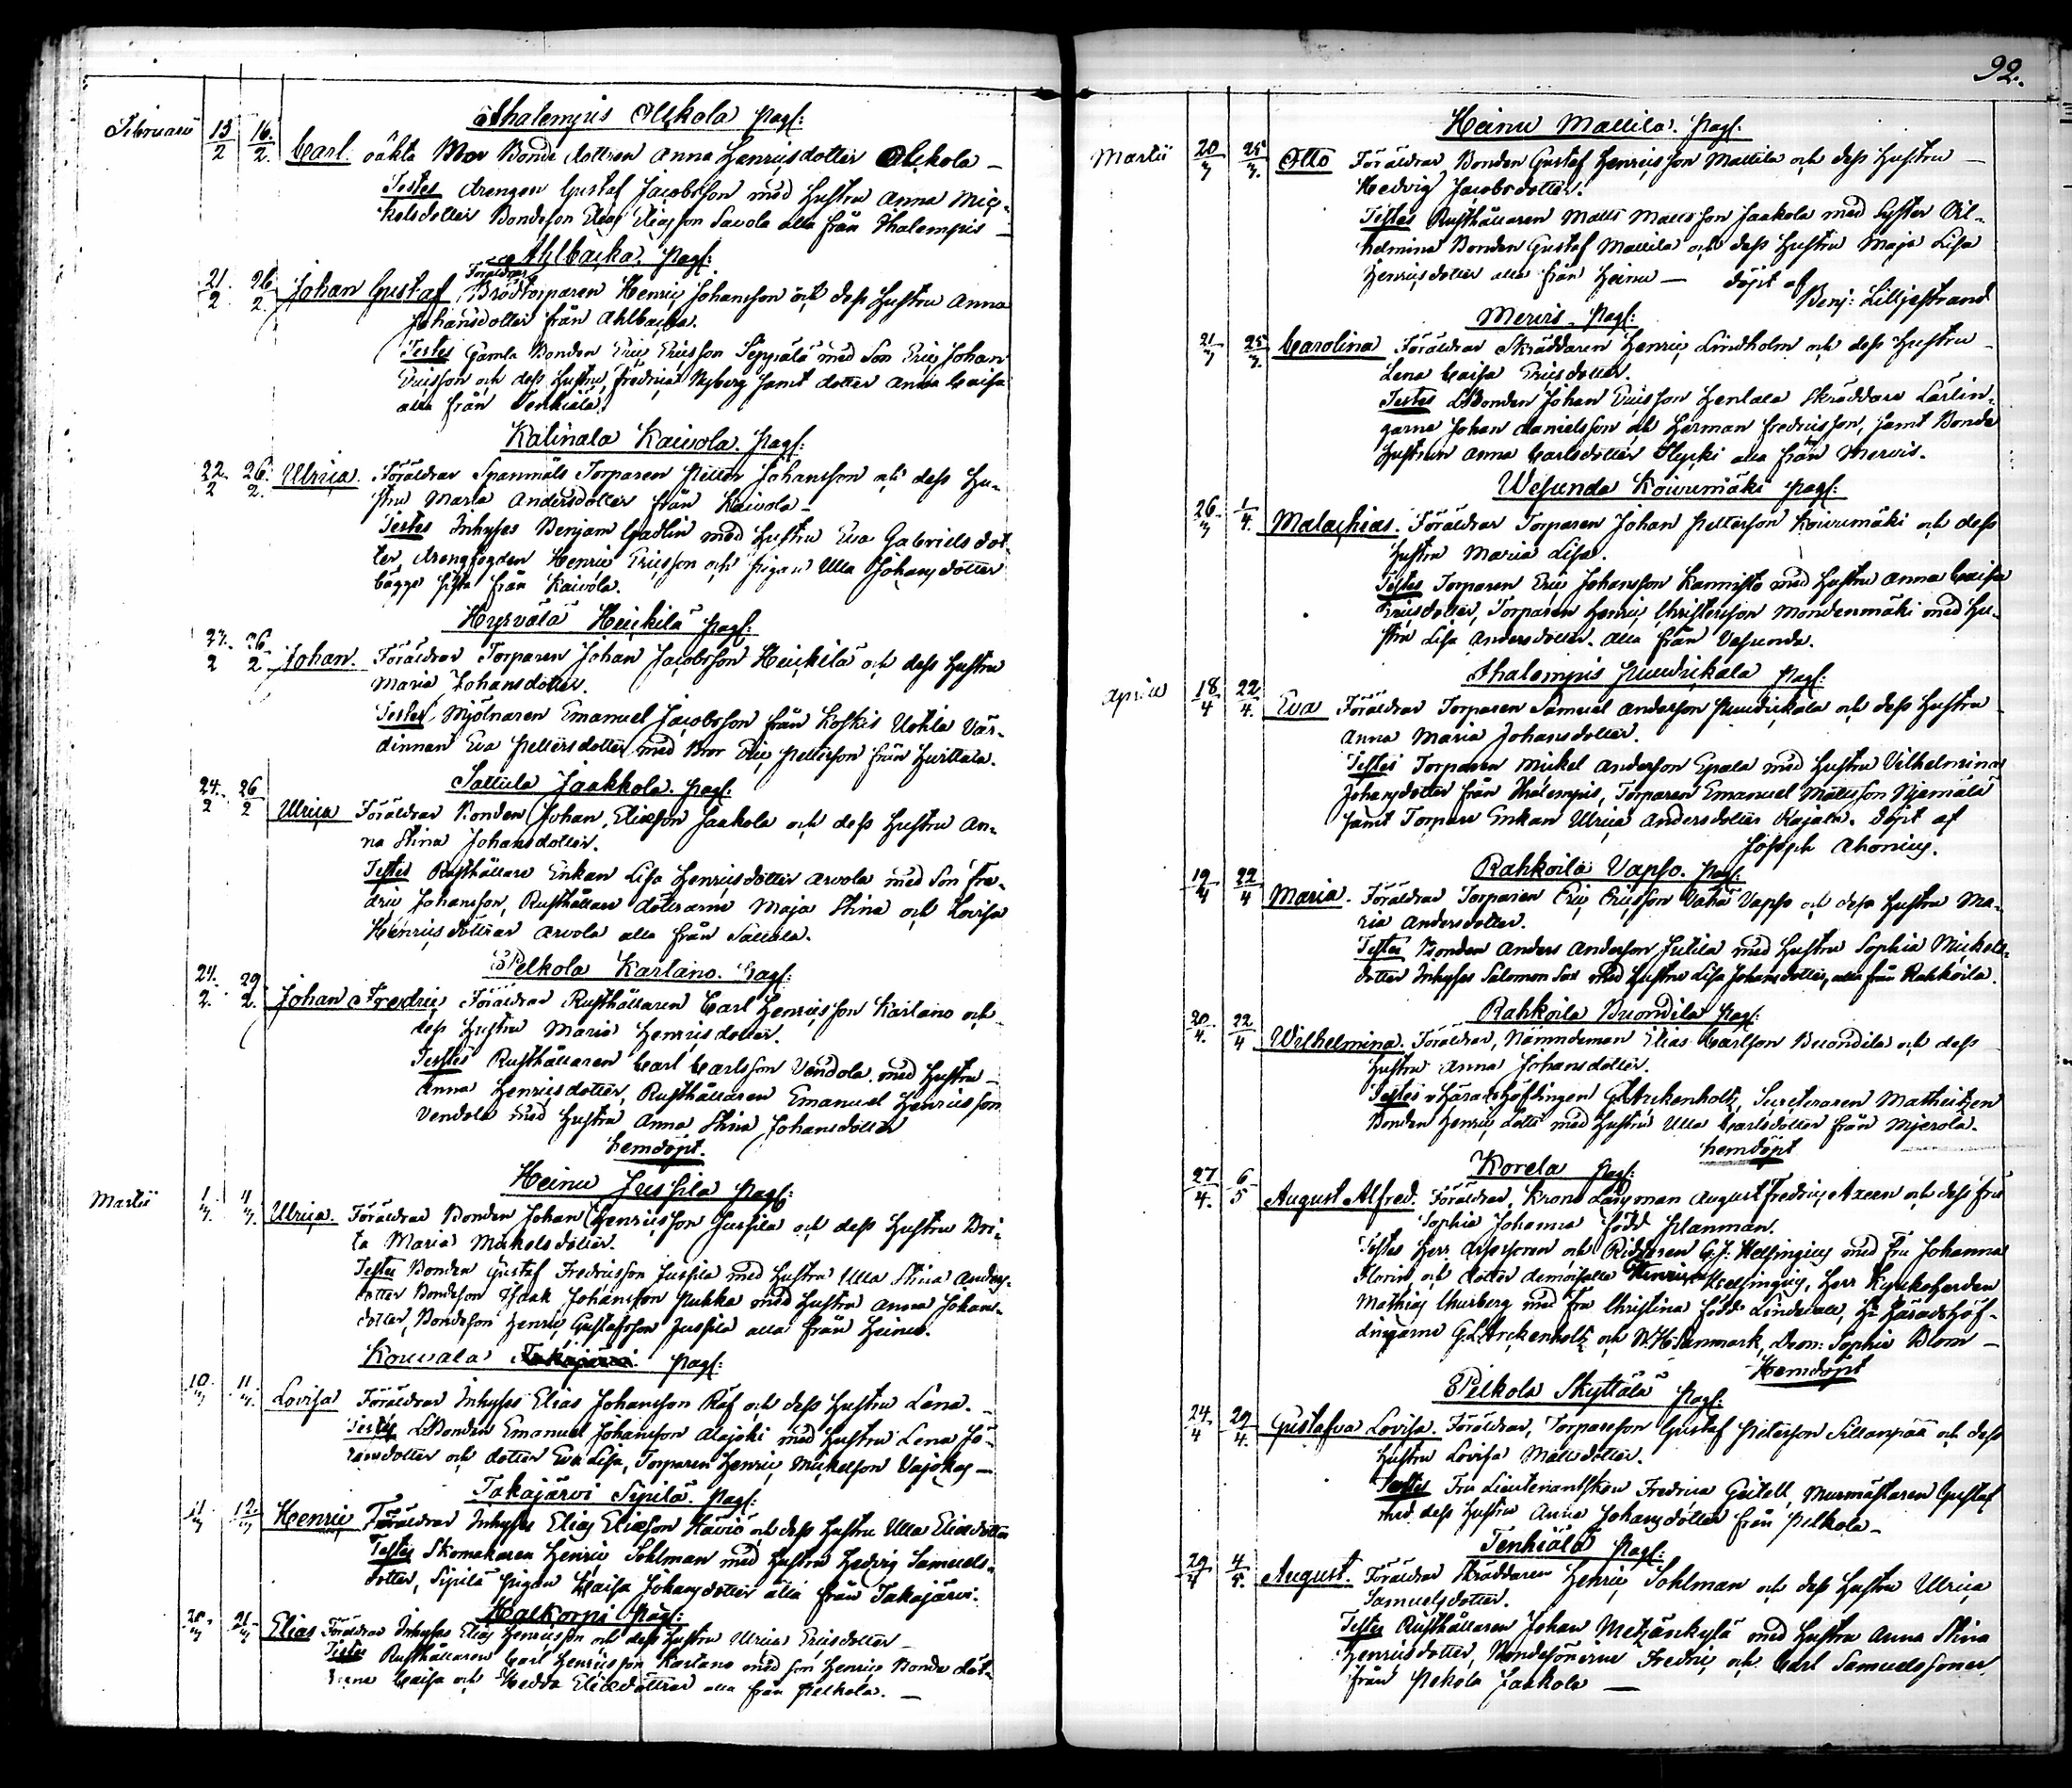 92.
Februarii
Thalempis Ollkola pagf:
15/2 16./2. Carl. oäkta Mor Bonde dottren Anna Henricsdotter Ollkola –
Testes drengen Gustaf Jacobsson med hustru Anna Mic-
kelsdotter Bondeson Elias Eliasson Savola alla från Thalempis –
Ahlbacka. pagf:
21./2 26/2. Johan Gustaf Föräldrar Brödtorparen Henric Johansson och dess hustru Anna
Johansdotter från Ahlbacka.
Testes Gamla Bonden Eric Ericsson Seppälä med Son Eric Johan
Ericsson och dess hustru Fredrica Nyberg samt dotter Anna Caisa
alla från Tenhiälä.
Katinala Kaivola. pagf:
22./2 26./2. Ulrica. Föräldrar Spanmåls Torparen Petter Johansson och dess hu-
stru Maria Andersdotter från Kaivola –
Testes Inhyses Benjam med hustru Eva Gabriels dot-
ter, drengen Henric Ericsson och pigan Ulla Johansdotter
bägge sista från Kaivola.
Hyrvälä Heickilä pagf:
26./2. Johan. Föräldrar Torparen Johan Jacobsson Heickilä och dess hustru
Maria Johansdotter.
Testes, Mjölnaren Emanuel Jacobsson från Koskis Uotila Vär-
dinnan Eva Pettersdotter med Bror Eric Pettersson från Hurttala.
Sattula Jaakkola. pagf:
24./2 26/2 Ulrica Föräldrar Bonden Johan Eliasson Jaakola och dess hustru An-
na Stina Johansdotter.
Testes Rusthållare Enkan Lisa Henricsdotter Arvola med Son Fre-
dric Johansson, Rusthållare döttrarne Maja Stina och Lovisa
Henricsdöttrar Arvola alla från Sattula.
Pelkola Kartano. Pagf:
29/2. Johan Fredric Föräldrar Rusthållaren Carl Henricsson Kartano och
dess hustru Maria Henricsdotter.
Testes Rusthållaren Carl Carlsson Vendola med hustru –
Anna Henricsdotter, Rusthållaren Emanuel Henricsson
Vendola med hustru Anna Stina Johansdotter
hemdöpt.
Martii
Heinu Jussila pagf:
Ulrica. Föräldrar Bonden Johan Henricsson Jussila och dess hustru Bri-
ta Maria Mickelsdotter.
Testes Bonden Gustaf Fredricsson Jussila med hustru Ulla Stina Anders-
dotter Bondeson Isaak Johansson Pukka med hustru Anna Johans-
dotter, Bondeson Henric Gustafsson Jussila alla från Heinu.
Kouvala pagf:
10./3 11./3. Lovisa Föräldrar Inhyses Elias Johansson Räf och dess hustru Lena. –
Testes LBonden Emanuel Johansson Alajoki med hustru Lena Jö-
ransdotter och dotter Eva Lisa, Torparen Henric Mickelsson Vajokas –
Takajärvi Sipilä. pagf:
11/3 12./3 Henric Föräldrar Inhyses Elias Eliasson Hävio och dess hustru Ulla Eliedotter
Testes Skomakaren Henric Sohlman med hustru Hedvig Samuels-
dotter, Sipilä pigan Caisa Johansdotter alla från Takajärvi.
Halkorpi pagf:
Elias Föräldrar Inhyses Elias Henricsson och dess hustru Ulrica Ericsdotter –
Testes Rusthållaren Carl Henricsson Kartano med son Henric Bonde döt-
trarna Caisa och Hedda Eliedöttrar alla från Pelkola. –
Martii
Heinu Mattila. pagf:
20/3 25/3. Otto Föräldrar Bonden Gustaf Henricsson Mattila och dess hustru –
Hedvig Jacobsdotter.
Testes Rusthållaren Matts Mattsson Jaakola med Syster Vil-
helmina Bonden Gustaf Mattila och dess hustru Maja Lisa
Henricsdotter alla från Heinu – döpt af
Benj: Lilljestrand
Mervis. pagf:
21/3 25/3. Carolina Föräldrar Skräddaren Henric Lindholm och dess hustru –
Lena Caisa Ericsdotter.
Testes LBonden Johan Ericsson Hentala Skräddare Lärlin-
garne Johan Danielsson och Herman Fredricsson, samt Bonde
hustrun Anna Carlsdotter Hycki alla från Mervis.
Wesunda Koivumäki pagf:
26/3 1/4. Malachias. Föräldrar Torparen Johan Pettersson Koivumäki och dess
hustru Maria Lisa.
Testes Torparen Eric Johansson Kannisto med hustru Anna Caisa
Ericsdotter, Torparen Henric Christersson Mondenmäki med hu-
stru Lisa Andersdotter. alla från Vesunda.
Aprill
Thalempis pagf:
18/4 22/4. Eva Föräldrar Torparen Samuel Andersson och dess hustru –
Anna Maria Johansdotter.
Testes Torparen Mickel Andersson Epala med hustru Vilhelmina
Johansdotter från Thalempis, Torparen Emanuel Mattsson Njemälä
samt Torpare Enkan Ulrica Andersdotter Kajala. döpt af
Joseph Ahonius.
Rahkoila Vapso. pagf:
19/4 22/4 Maria. Föräldrar Torparen Eric Ericsson Vähä Vapso och dess hustru Ma-
ria Andersdotter.
Testes Bonden Anders Andersson Jutila med hustru Sophia Mickels-
dotter Inhyses Salomon Sax med hustru Lisa Johansdotter, alla från Rahkoila.
Rahkoila Buondila pagf:
20./4. 22/4 Wilhelmina. Föräldrar, Nämndeman Elias Carlsson Buondila och dess
hustru Anna Johansdotter.
Testes Häradshöfdingen G. L. Arckenholtz, Secreteraren Matheitzen
Bonden Henric med hustru Ulla Carlsdotter från Mjerola.
hemdöpt
Korela pagf:
27/4. 6/5 August Alfred. Föräldrar, Krono Länsman August Fredric Axeen och dess fru
Sophia Johanna född Planman.
Testes Herr Assessoren och G. J. Helsingius med Fru Johanna
Florin, och dotter demoiselle Henrica Helsingius, Herr Kyrkoherden
Mathias med Fru Christina född Lindwall, Hr Häradshöf-
dingarne G. L. Arckenholtz och Dem: Sophie Blom –
Hemdöpt
Pelkola Skyttälä pagf:
24/4 29/4. Gustafva Lovisa. Föräldrar, Torpareson Gustaf Petersson Sillanpää och dess
hustru Lovisa Mattsdotter.
Testes Fru Lieutenantskan Fredrica Geitell, Murmästaren Gustaf
med dess hustru Anna Johansdotter från Pelkola –
Tenhiälä pagf:
29/4 4/5. August. Föräldrar Skräddaren Henric Sohlman och dess hustru Ulrica
Samuelsdotter.
Testes Rusthållaren Johan Metzänkylä med hustru Anna Stina
Henricsdotter, Bondesönerne Fredric och Carl Samuelssöner
från Pekola Jaakola –